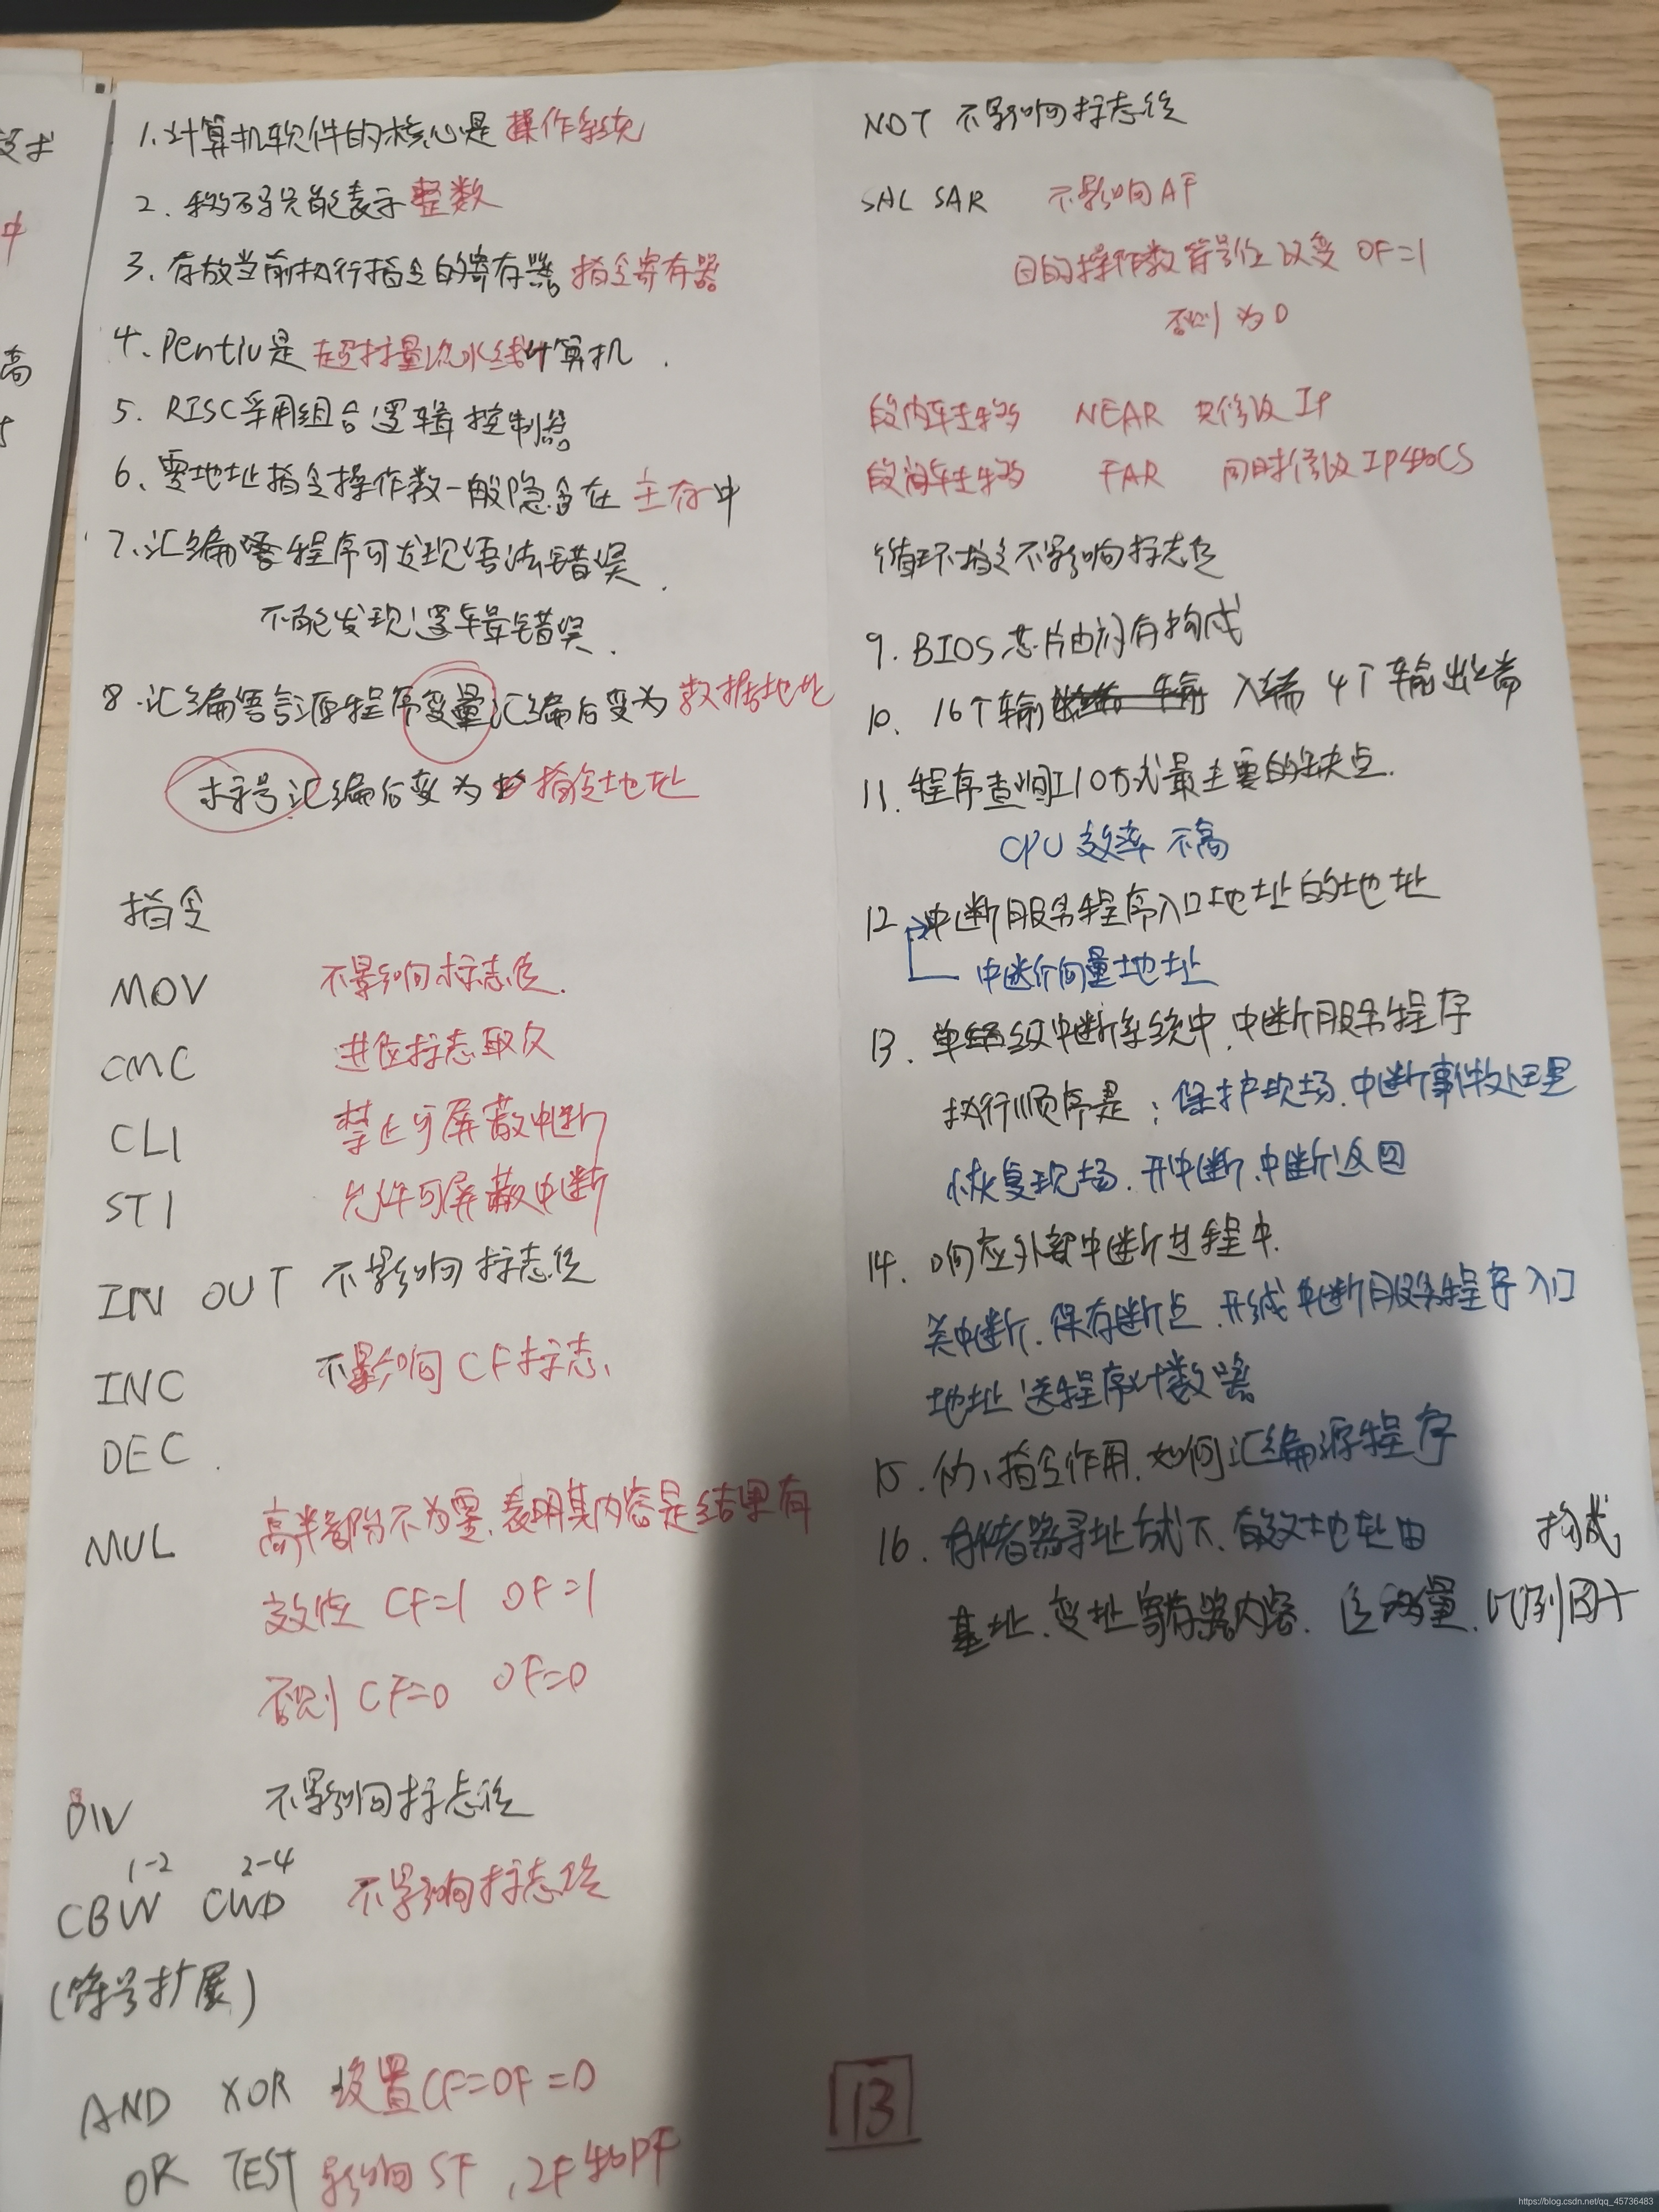 1. 计算机软件的核心是操作系统
2. 移码只能表示整数
3. 存放当前执行指令的寄存器 指令寄存器
4. Pentiu是超标量流水线计算机.
5. RISC采用组合逻辑控制器
6、零地址指令操作数一般隐含在主存中
7.汇编语言程序可发现语法错误.
不能发现逻辑错误.
8.汇编语言源程序变量汇编后变为数据地址
标号汇编后变为指令地址
指令
MOV 不影响标志位.
CMC 进位标志取反
CLI 禁止可屏蔽中断
STI 允许可屏蔽中断
IN OUT 不影响标志位
INC 不影响CF标志、
DEC.
MUL 高半部份不为零、表明其内容是结果有
效位 CF=1 OF=1
否则 CF=0 OF=0
DIV 不影响标志位
1-2 2-4
CBW CWD 不影响标志位
(符号扩展)
AND XOR 设置CF=OF=0
OR TEST 影响SF,ZF和PF
NOT 不影响标志位
SAL SAR 不影响AF
目的操作数符号位改变 OF=1
否则为0
段内转移 NEAR 只修改IP
段间转移 FAR 同时修改IP和CS
循环指令不影响标志位
9. BIOS芯片由闪存构成
10. 16个输入端 4个输出端
11. 程序查询I/O方式最主要的缺点.
CPU效率不高
12. 中断服务程序入口地址的地址
中断向量地址
13. 单级中断系统中,中断服务程序
执行顺序是:保护现场、中断事件处理
恢复现场、开中断、中断返回
14. 响应外部中断过程中.
关中断、保存断点、形成中断服务程序入口
地址送程序计数器
15. 伪指令作用、如何汇编源程序
16. 存储器寻址方式下、有效地址由 构成
基址、变址寄存器内容、位移量、比例因子
13
https://blog.csdn.net/qq_45736483